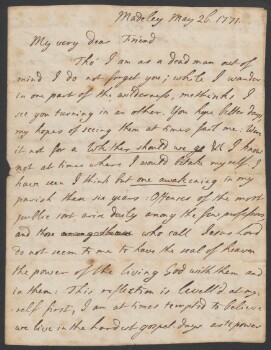 Madeley May 26. 1771.
My very dear Friend
Tho' I am as a dead man out of
mind I do not forget you; while I wander
in one part of the wilderness, methinks I
see you turning in an other. You hope better days
my hopes of seeing them at times fail me. Were
it not for a Whither should we go &c I know
not at times where I would betake myself. I
have seen I think but one awakening in my
parish these six years. Offences of the most
public sort arise daily among the few professors
and those among them who call Jesus Lord
do not seem to me to have the seal of heaven
the power of the living God with them and
in them. This reflection is levell'd at my-
self first, I am at times tempted to believe
we live in the hardest gospel days as to power